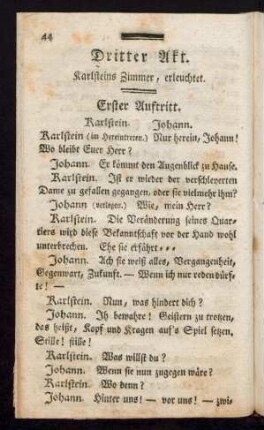 44
Dritter Akt.
Karlsteins Zimmer, erleuchtet.
Erster Auftritt.
Karlstein. Johann.
Karlstein (im Hereintreten.) Nur herein, Johann!
Wo bleibt Euer Herr?
Johann. Er kömmt den Augenblick zu Hause.
Karlstein. Ist er wieder der verschleyerten
Dame zu gefallen gegangen, oder sie vielmehr ihm?
Johann (verlegen.) Wie, mein Herr?
Karlstein. Die Veränderung seines Quar-
tiers wird diese Bekanntschaft vor der Hand wohl
unterbrechen. Ehe sie erfährt---
Johann. Ach sie weiß alles, Vergangenheit,
Gegenwart, Zukunft. — Wenn ich nur reden dürf-
te! —
Karlstein. Nun, was hindert dich?
Johann. Ih bewahre! Geistern zu trotzen,
das heißt, Kopf und Kragen auf's Spiel setzen,
Stille! stille!
Karlstein. Was willst du?
Johann. Wenn sie nun zugegen wäre?
Karlstein. Wo denn?
Johann. Hinter uns! — vor uns! — zwi-